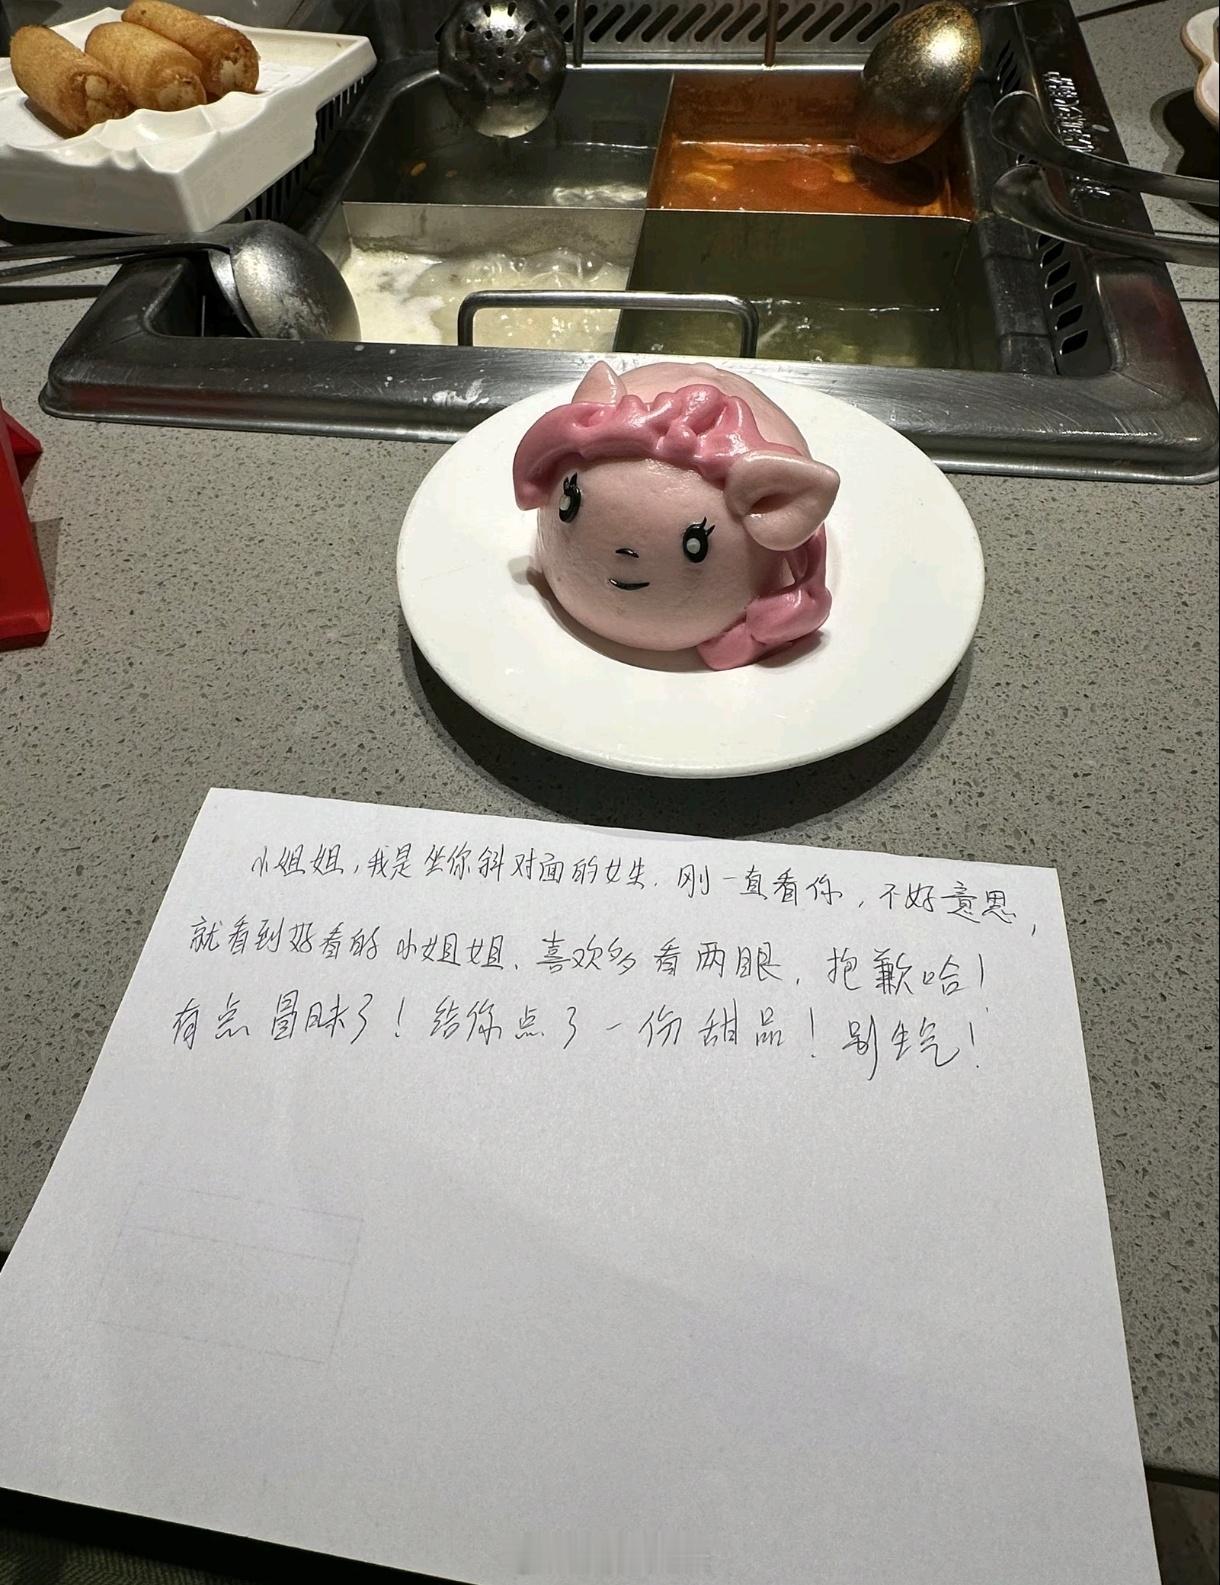 小姐姐，我是坐你斜对面的女生．刚一直看你，不好意思，
就看到好看的小姐姐、喜欢多看两眼，抱歉哈！
有点冒昧了！给你点了一份甜品！别生气！